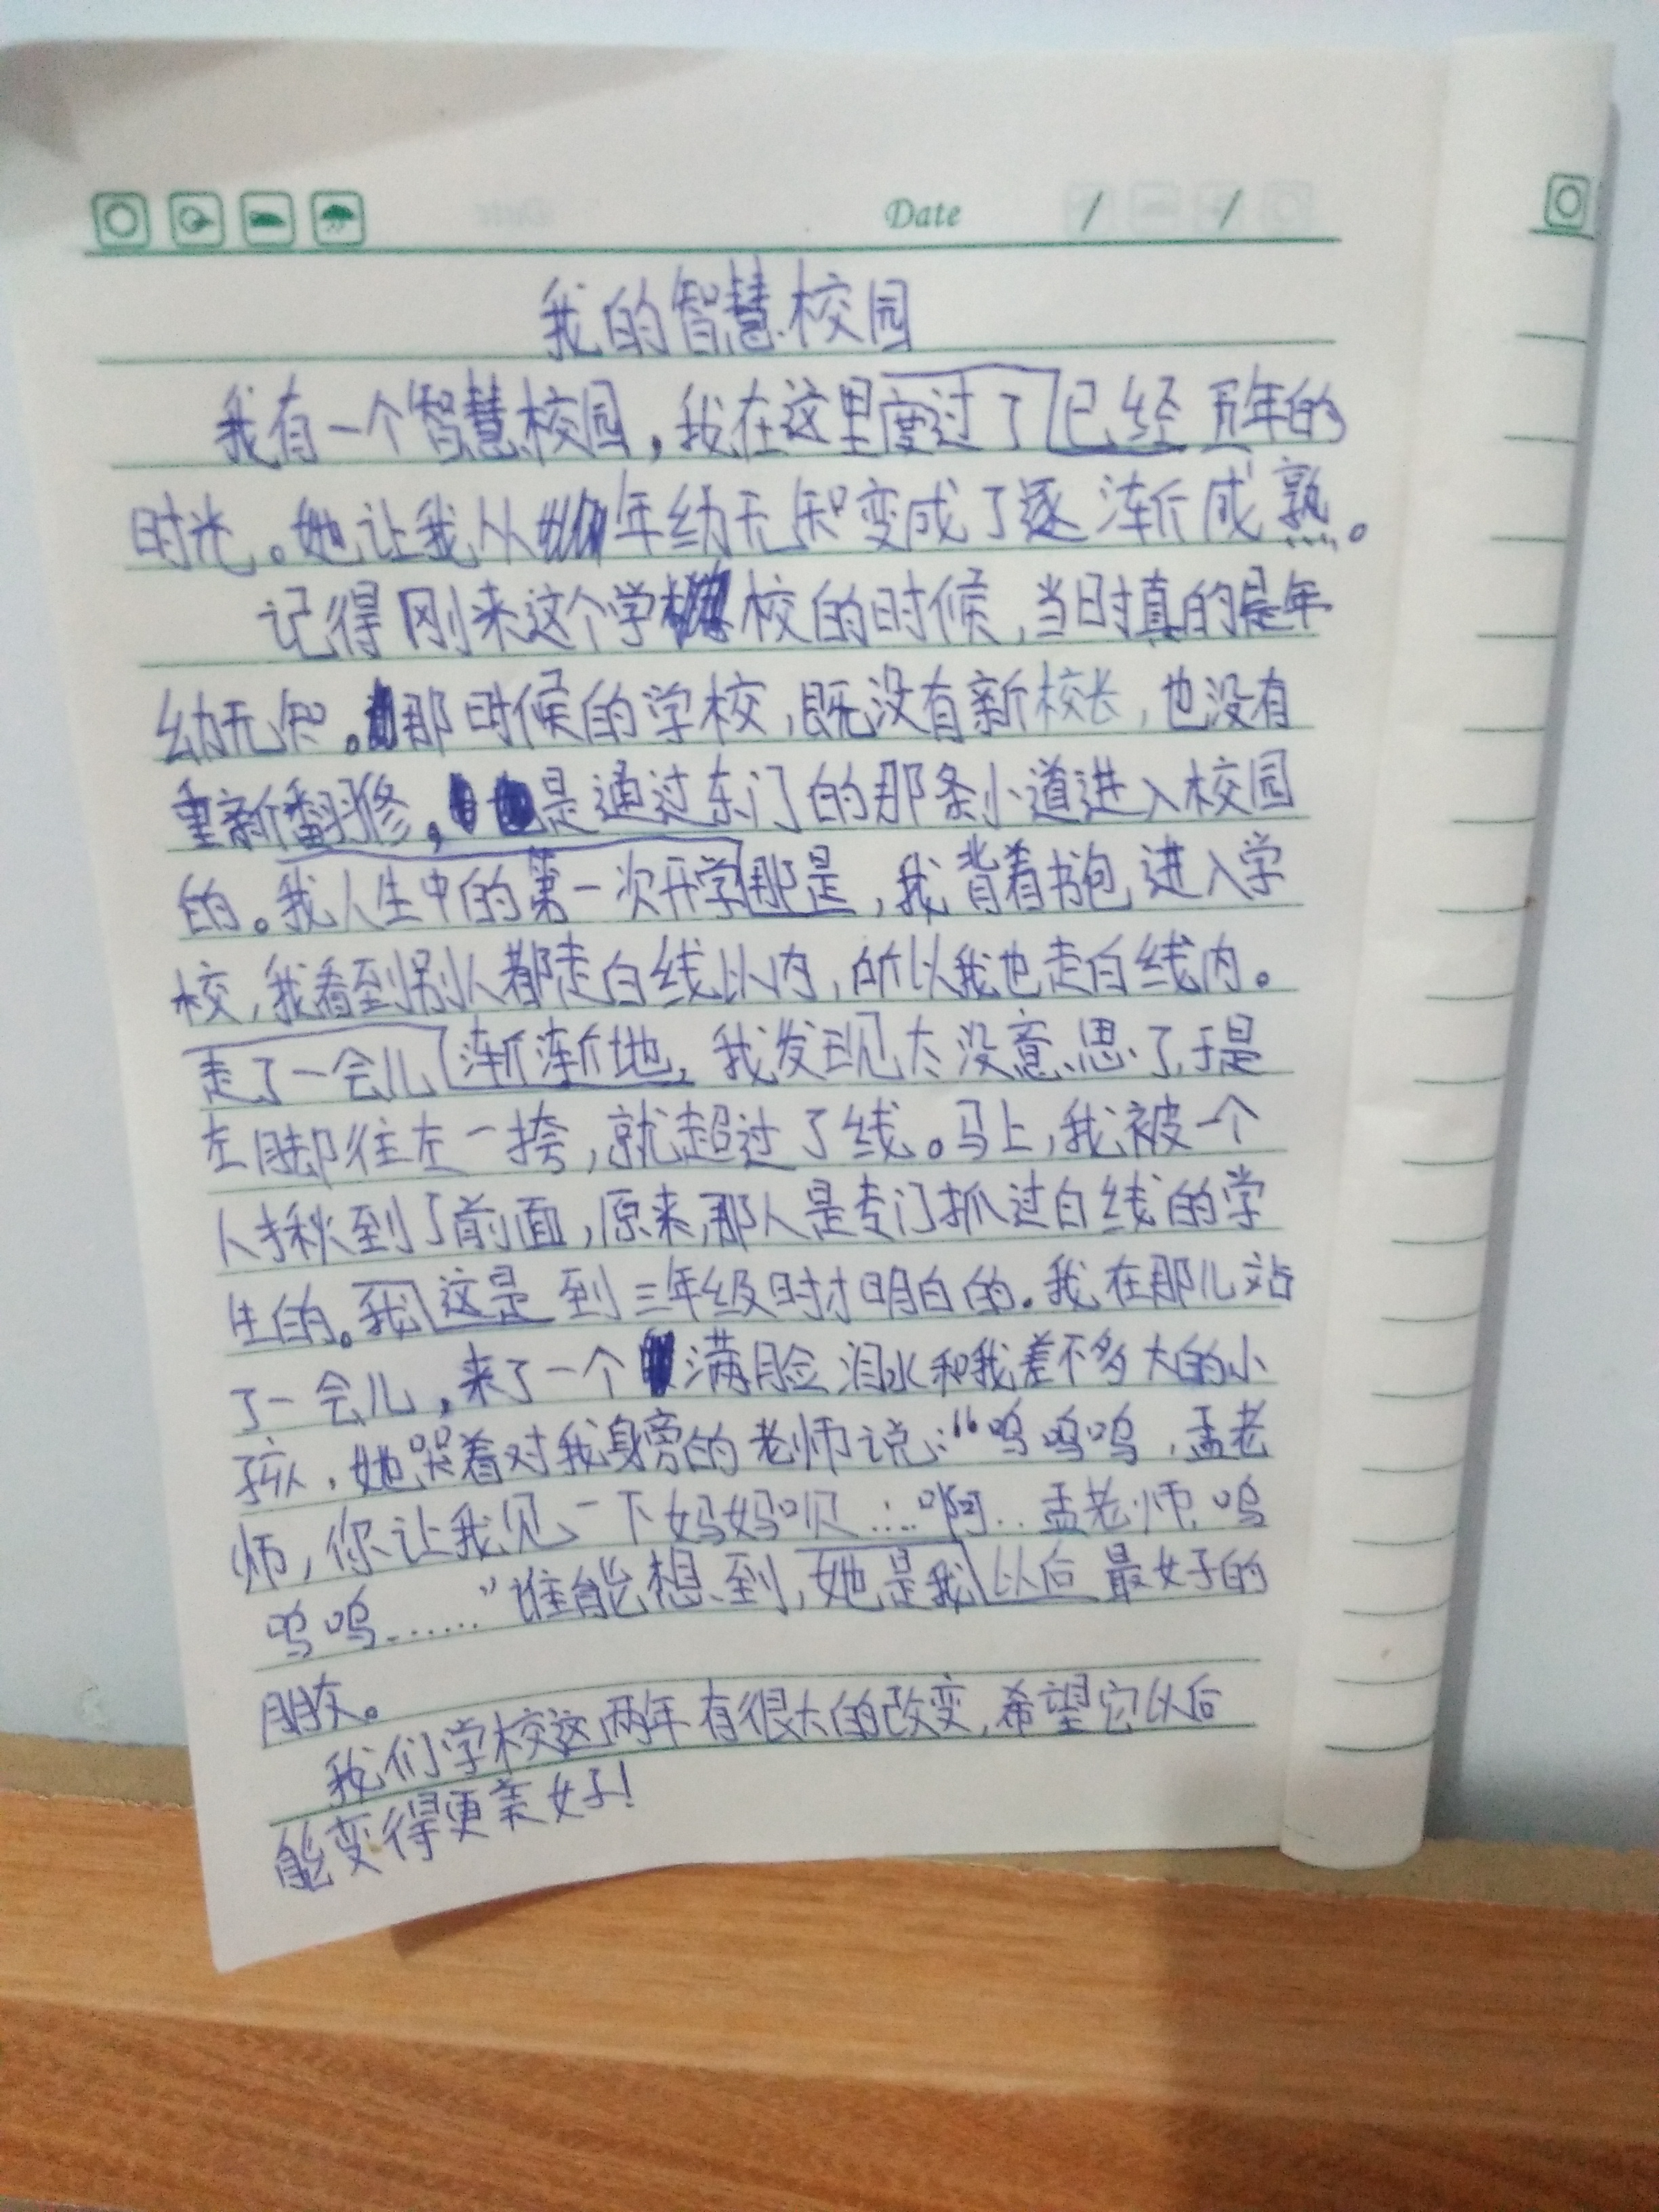 Date / /
我的智慧校园
我有一个智慧校园，我在这里度过了已经五年的
时光。她让我从年幼无知变成了逐渐成熟。
记得刚来这个学校的时候，当时真的是年
幼无知。那时候的学校，既没有新校长，也没有
重新翻修，是通过东门的那条小道进入校园
的。我人生中的第一次开学那是，我背着书包进入学
校，我看到别人都走白线以内，所以我也走白线内。
走了一会儿渐渐地，我发现太没意思了，于是
左脚往左一挎，就超过了线。马上，我被一个
人揪到了前面，原来，那人是专门抓过白线的学
生的。我这是到三年级时才明白的。我在那儿站
了一会儿，来了一个满脸泪水和我差不多大的小
孩，她哭着对我身旁的老师说：“呜呜呜，孟老
师，你让我见一下妈妈呗……啊…孟老师，呜
呜呜……”谁能想到，她是我以后最好的
朋友。
我们学校这两年有很大的改变，希望它以后
能变得更美好！